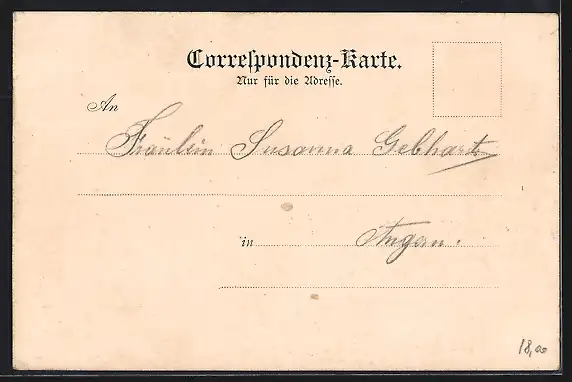 Correspondenz-Karte.
Nur für die Adresse.
An
Fräulein Susanna Gebhart
in Angern.
18,00